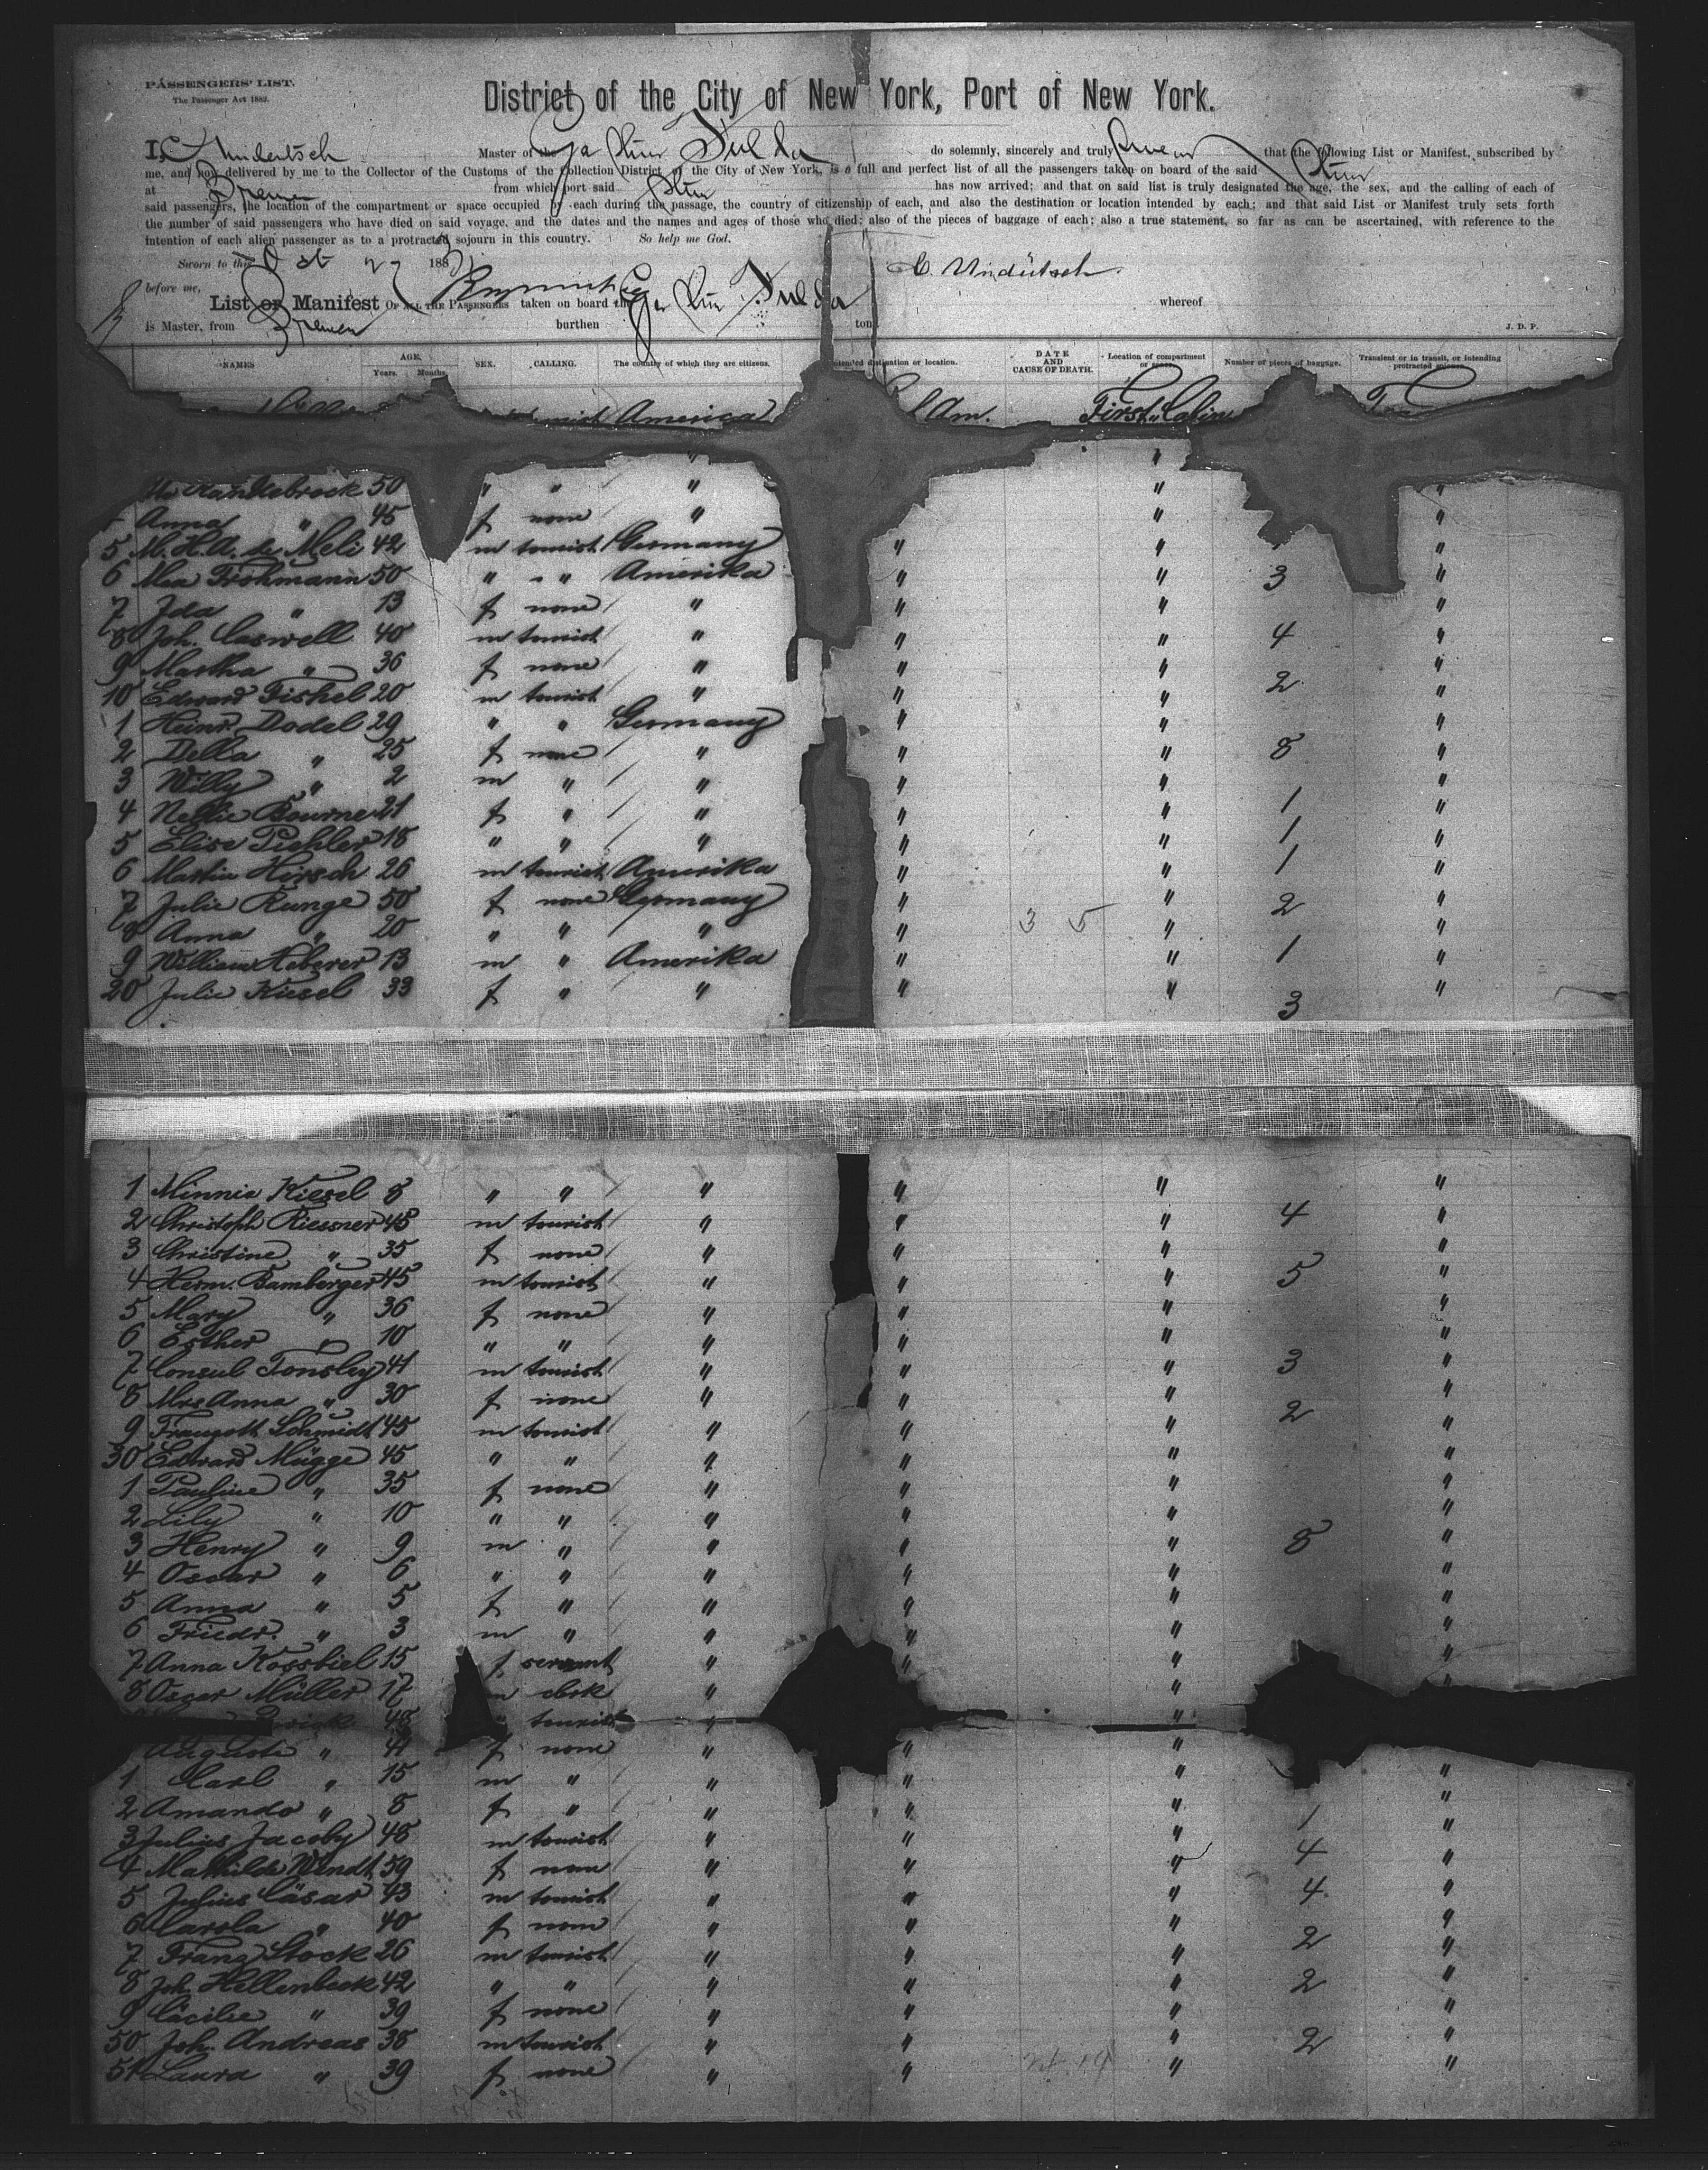 PASSENGERS' LIST.
The Passenger Act 1882.
District of the City of New York, Port of New York.
I, C. Undeutsch Master of the Ga Stmr Fulda do solemnly, sincerely and truly swear that the following List or Manifest, subscribed by
me, and now delivered by me to the Collector of the Customs of the Collection District of the City of New York, is a full and perfect list of all the passengers taken on board of the said Stmr
at Bremen from which port said Stmr has now arrived; and that on said list is truly designated the age, the sex, and the calling of each of
said passengers, the location of the compartment or space occupied by each during the passage, the country of citizenship of each, and also the destination or location intended by each; and that said List or Manifest truly sets forth
the number of said passengers who have died on said voyage, and the dates and the names and ages of those who died; also of the pieces of baggage of each; also a true statement, so far as can be ascertained, with reference to the
intention of each alien passenger as to a protracted sojourn in this country. So help me God.
Sworn to this Oct 27 188
C. Undütsch
before me,
List or Manifest OF ALL THE PASSENGERS taken on board the Ga Stm Fulda whereof
is Master, from Bremen burthen tons J. D. P.
NAMES AGE. Years. Months. SEX. CALLING. The country of which they are citizens. Intended destination or location. DATE AND CAUSE OF DEATH. Location of compartment or space. Number of pieces of baggage. Transient or in transit, or intending protracted sojourn.
America Am. First Cabin
50 " " " " "
Anna " 45 f none " " "
5 M. H. A. de Meli 42 m tourist Germany " " "
6 Max Frohmann 50 " " Amerika " " 3 "
7 Ida " 13 f none " " " "
8 Joh. Caswell 40 m tourist " " " 4 "
9 Martha " 36 f none " " " "
10 Edward Fishel 20 m tourist " " " 2 "
1 Heinr. Dodel 29 " " Germany " " "
2 Della " 25 f none " " " 8 "
3 Willy " 2 m " " " " "
4 Nellie Bourne 21 f " " " " 1 "
5 Elise Piehler 18 " " " " " 1 "
6 Martin Hirsch 26 m tourist Amerika " " 1 "
7 Julie Runge 50 f none Germany " " 2 "
8 Anna " 20 " " " " 3 5 " "
9 William Aeberer 13 m " Amerika " " 1 "
20 Julie Kiesel 33 f " " " " 3 "
1 Minnie Kiesel 8 " " " " " "
2 Christoph Riessner 48 m tourist " " " 4 "
3 Christine " 35 f none " " " "
4 Herm. Bamberger 45 m tourist " " " 5 "
5 Mary " 36 f none " " " "
6 Esther " 10 " " " " " "
7 Consul Tonsley 41 m tourist " " " 3 "
8 Mrs Anna " 30 f none " " " "
9 Traugott Schmidt 45 m tourist " " " 2 "
30 Edward Mügge 45 " " " " " "
1 Pauline " 35 f none " " " "
2 Lily " 10 " " " " " "
3 Henry " 9 m " " " " 8 "
4 Oscar " 6 " " " " " "
5 Anna " 5 f " " " " "
6 Friedr. " 3 m " " " " "
7 Anna Kossbiel 15 f servant " " " "
8 Oscar Müller 17 m clerk " " "
48 " tourist " "
Auguste " 41 f none " " " "
1 Carl " 15 m " " " " "
2 Amanda " 8 f " " " " 1 "
3 Julius Jacoby 48 m tourist " " " "
4 Mathilde Wendt 59 f none " " " 4 "
5 Julius Cäsar 43 m tourist " " " 4 "
6 Carola " 40 f none " " " "
7 Franz Stock 26 m tourist " " " 2 "
8 Joh. Hellenbeck 42 " " " " " 2 "
9 Cäcilie " 39 f none " " " "
50 Joh. Andreas 38 m tourist " " " 2 "
51 Laura " 39 f none " " " "